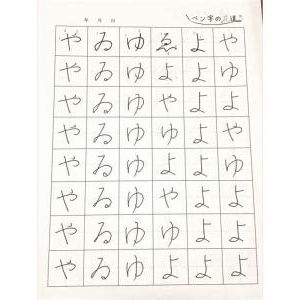 年 月 日
ペン字の
や ゐ ゆ ゑ よ や
や ゐ ゆ よ よ ゆ
や ゐ ゆ や よ よ
や ゐ ゆ ゆ よ や
や ゐ ゆ よ よ ゆ
や ゐ ゆ や よ よ
や ゐ ゆ ゆ よ よ
や ゐ ゆ よ よ よ